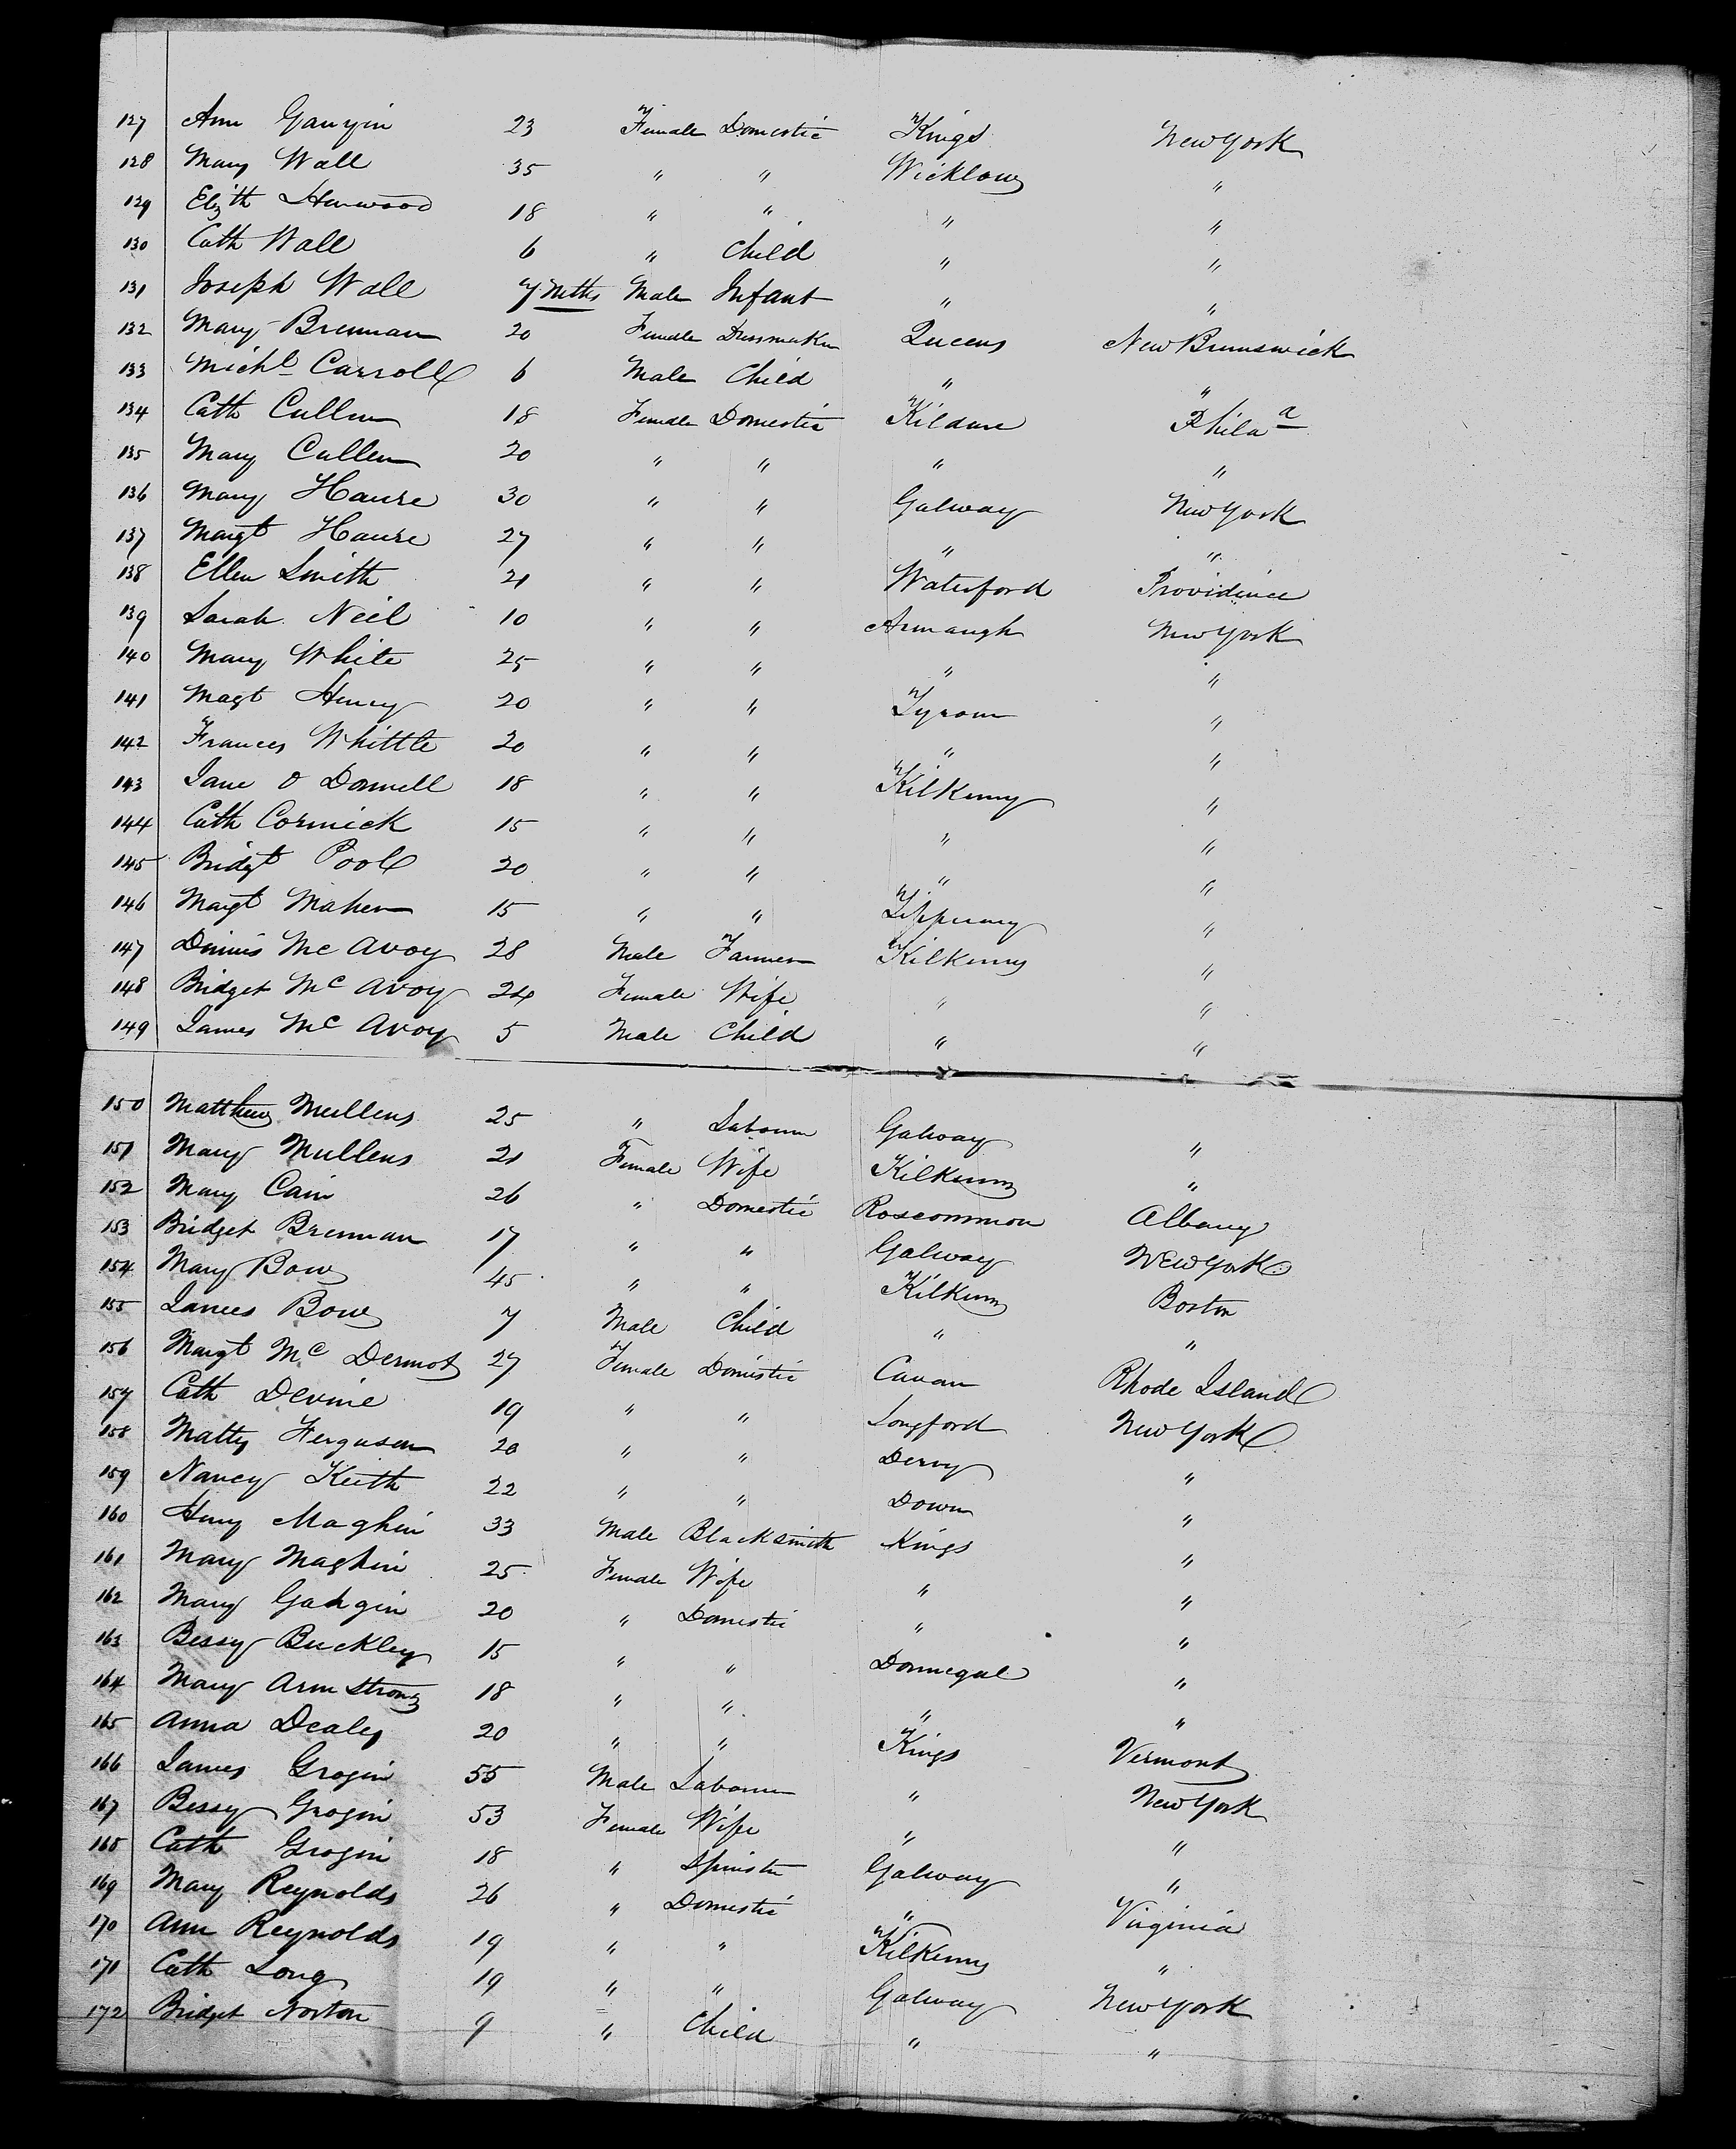 127 Ann Gauyin 23 Female Domestic Kings New York
128 Mary Wall 35 " " Wicklow "
129 Elizth Henwood 18 " " " "
130 Cath Wall 6 " Child " "
131 Joseph Wall 7 Mths Male Infant " "
132 Mary Brennan 20 Female Dressmaker Queens New Brunswick
133 Michl Carroll 6 Male Child " "
134 Cath Cullen 18 Female Domestic Kildare Phila
135 Mary Cullen 20 " " " "
136 Mary 30 " " Galway New York
137 Margt 27 " " " "
138 Ellen Smith 21 " " Waterford Providence
139 Sarah Neil 10 " " Armaugh New York
140 Mary White 25 " " " "
141 Magt Henry 20 " " Tyrone "
142 Frances Whittle 20 " " " "
143 Jane O Donnell 18 " " Kilkenny "
144 Cath Cormick 15 " " " "
145 Bridgt Pool 20 " " " "
146 Margt Maher 15 " " Tipperary "
147 Dennis Mc Avoy 28 Male Farmer Kilkenny "
148 Bridget Mc Avoy 24 Female Wife " "
149 James Mc Avoy 5 Male Child " "
150 Matthew Mullens 25 " Labourer Galway "
151 Mary Mullens 21 Female Wife Kilkenny "
152 Mary Cain 26 " Domestic Roscommon Albany
153 Bridget Brennan 17 " " Galway New York
154 Mary Bow 45 " " Kilkenny Boston
155 James Bow 7 Male Child " "
156 Margt Mc Dermot 27 Female Domestic Cavan Rhode Island
157 Cath Devine 19 " " Longford New York
158 Matty Ferguson 20 " " Derry "
159 Nancy Keith 22 " " Down "
160 Henry Maghin 33 Male Blacksmith Kings "
161 Mary Maghin 25 Female Wife " "
162 Mary Gahgin 20 " Domestic " "
163 Bessy Buckley 15 " " Donnegal "
164 Mary Armstrong 18 " " " "
165 Anna Dealy 20 " " Kings Vermont
166 James Grogin 55 Male Labourer " New York
167 Bessy Grogin 53 Female Wife " "
168 Cath Grogin 18 " Spinster Galway "
169 Mary Reynolds 26 " Domestic " Virginia
170 Ann Reynolds 19 " " Kilkenny "
171 Cath Long 19 " " Galway New York
172 Bridget Norton 9 " Child " "